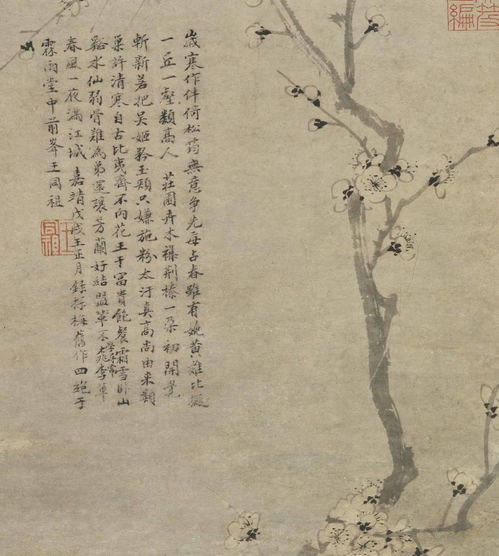 歲寒作伴倚松筠無意爭先每占春雖有蠟黃誰比擬
一丘一壑類高人 莊園卉木襍荊榛一朵初開覺
斬新若把吳姬矜玉頰只嫌施粉太汙真高尚由來期
巢許清寒自古比夷齊不向花王干富貴飽餐霜雪卧山
谿水仙弱骨難為弟還讓芳蘭好結盟 不 桃李
春風一夜滿江城 嘉靖戊戌王正月錄 梅舊作四絕于
霖雨堂中前峯王同祖
編